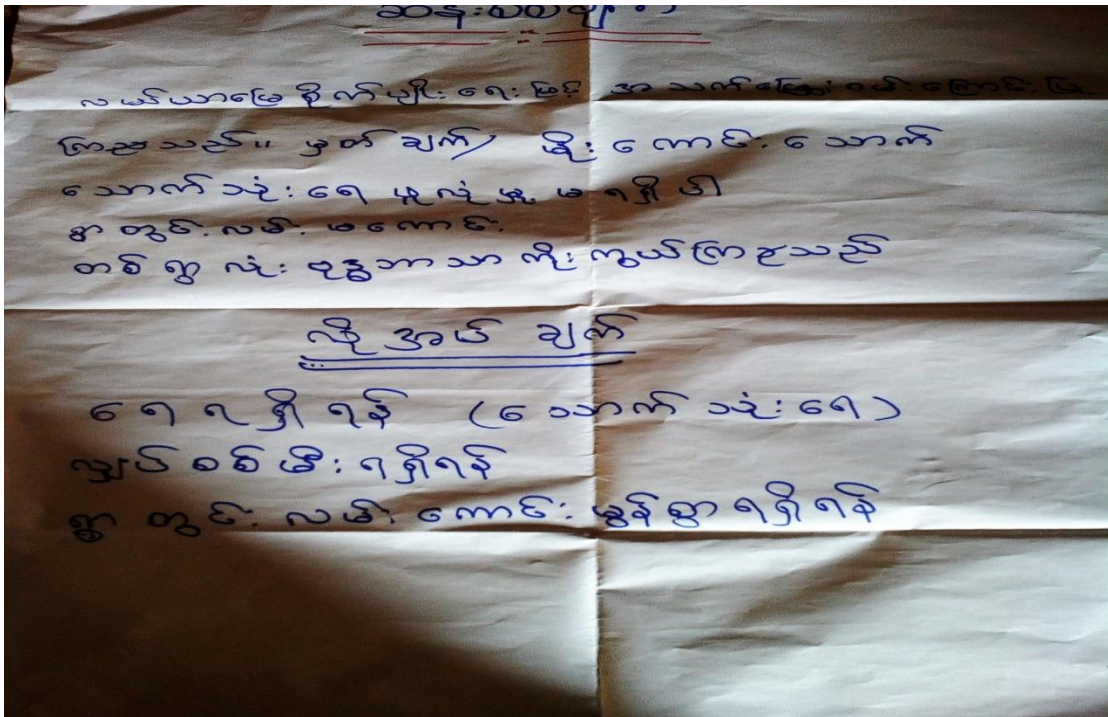 ဆန်းစစ်ချက်
လယ်ယာမြေစိုက်ပျိုးရေးဖြင့် အသက်မွေးဝမ်းကြောင်းပြု
ကြသည်။ မှတ်ချက်/ မိုးကောင်းသောက်
သောက်သုံးရေ မလုံမှု မရရှိပါ
ရွာတွင်းလမ်းမကောင်း
တစ်ရွာလုံး ဗုဒ္ဓဘာသာကိုးကွယ်ကြသည်
လိုအပ်ချက်
ရေရရှိရန် (သောက်သုံးရေ)
လျှပ်စစ်မီးရရှိရန်
ရွာတွင်းလမ်းကောင်းမွန်စွာရရှိရန်